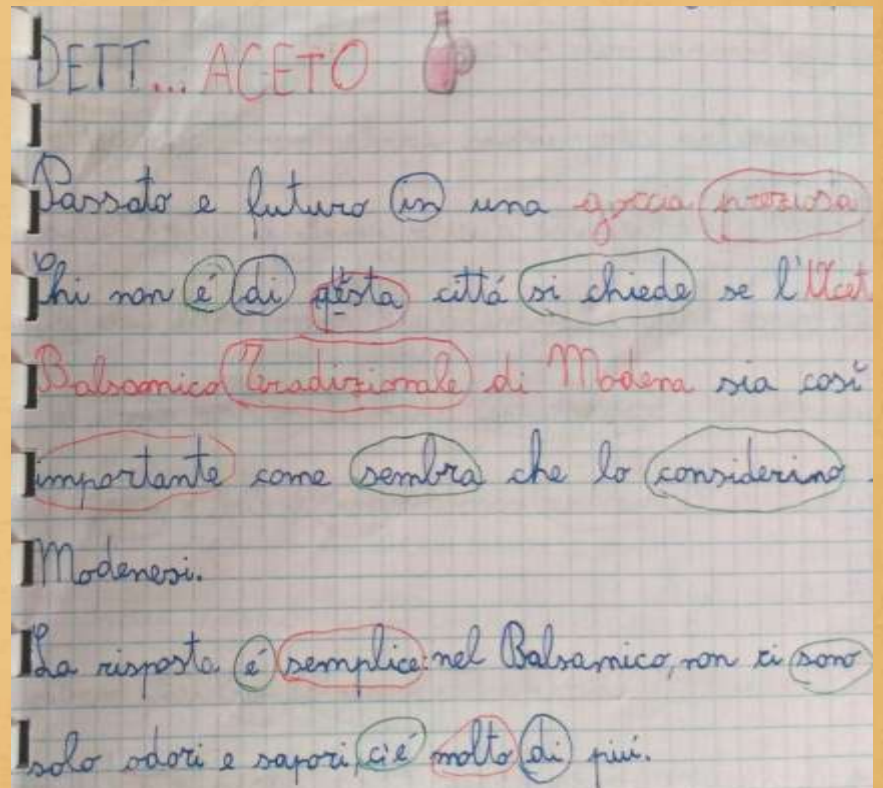 DETT... ACETO
Passato e futuro in una goccia preziosa
Chi non é di qésta cittá si chiede se l'Acet
Balsamico Tradizionale di Modena sia così
importante come sembra che lo considerino
Modenesi.
La risposta é semplice: nel Balsamico, non ci sono
solo odori e sapori, ci é molto di piú.